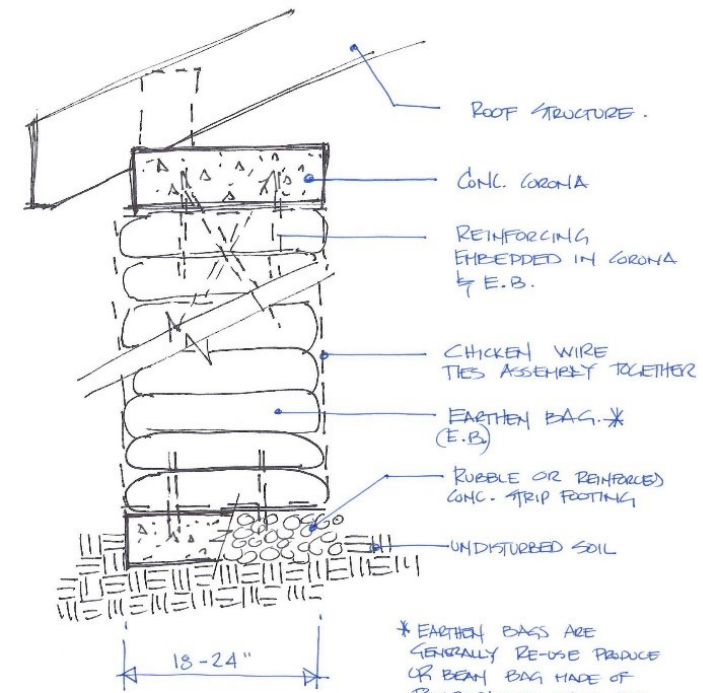 ROOF STRUCTURE.
CONC. CORONA
REINFORCING
EMBEDDED IN CORONA
& E.B.
CHICKEN WIRE
TIES ASSEMBLY TOGETHER
EARTHEN BAG.*
(E.B.)
RUBBLE OR REINFORCED
CONC. STRIP FOOTING
UNDISTURBED SOIL
* EARTHEN BAGS ARE
GENERALLY RE-USE PRODUCE
OR BEAN BAG MADE OF
18-24"